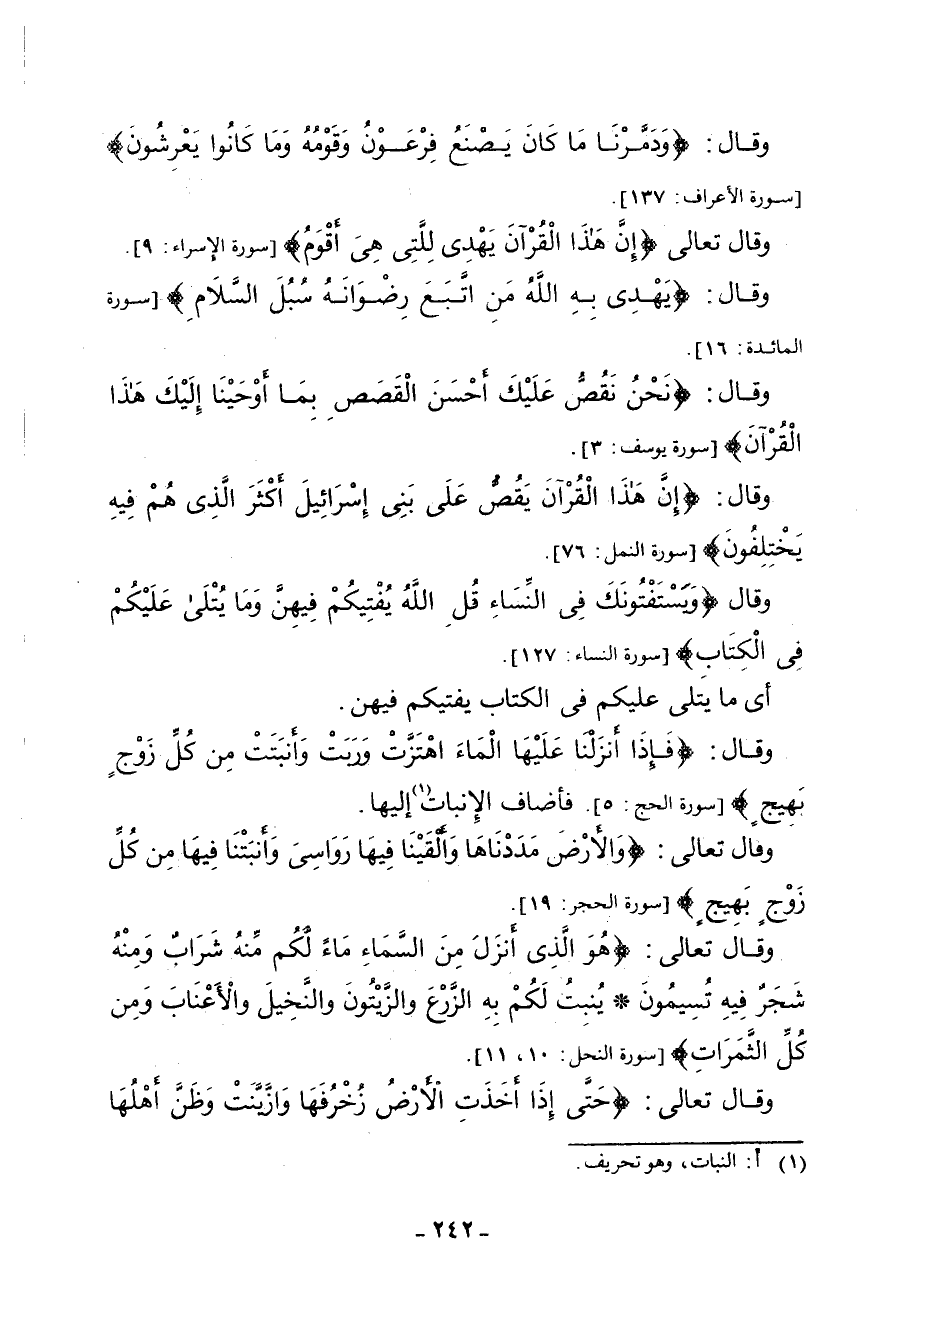 وقال : ﴿وَدَمَّرْنَا مَا كَانَ يَصْنَعُ فِرْعَوْنُ وَقَوْمُهُ وَمَا كَانُوا يَعْرِشُونَ﴾
[سورة الأعراف: ١٣٧].
وقال تعالى ﴿إِنَّ هَٰذَا الْقُرْآنَ يَهْدِى لِلَّتِى هِىَ أَقْوَمُ﴾ [سورة الإسراء: ٩].
وقال : ﴿يَهْدِى بِهِ اللَّهُ مَنِ اتَّبَعَ رِضْوَانَهُ سُبُلَ السَّلَامِ﴾ [سورة
المائدة: ١٦].
وقال : ﴿نَحْنُ نَقُصُّ عَلَيْكَ أَحْسَنَ الْقَصَصِ بِمَا أَوْحَيْنَا إِلَيْكَ هَٰذَا
الْقُرْآنَ﴾ [سورة يوسف: ٣].
وقال: ﴿إِنَّ هَٰذَا الْقُرْآنَ يَقُصُّ عَلَى بَنِى إِسْرَائِيلَ أَكْثَرَ الَّذِى هُمْ فِيهِ
يَخْتَلِفُونَ﴾ [سورة النمل: ٧٦].
وقال ﴿وَيَسْتَفْتُونَكَ فِى النِّسَاءِ قُلِ اللَّهُ يُفْتِيكُمْ فِيهِنَّ وَمَا يُتْلَىٰ عَلَيْكُمْ
فِى الْكِتَابِ﴾ [سورة النساء: ١٢٧].
أى ما يتلى عليكم فى الكتاب يفتيكم فيهن .
وقال : ﴿فَإِذَا أَنزَلْنَا عَلَيْهَا الْمَاءَ اهْتَزَّتْ وَرَبَتْ وَأَنبَتَتْ مِن كُلِّ زَوْجٍ
بَهِيجٍ﴾ [سورة الحج: ٥]. فأضاف الإنبات(١) إليها.
وقال تعالى : ﴿وَالْأَرْضَ مَدَدْنَاهَا وَأَلْقَيْنَا فِيهَا رَوَاسِىَ وَأَنبَتْنَا فِيهَا مِن كُلِّ
زَوْجٍ بَهِيجٍ﴾ [سورة الحجر: ١٩].
وقال تعالى : ﴿هُوَ الَّذِى أَنزَلَ مِنَ السَّمَاءِ مَاءً لَّكُم مِّنْهُ شَرَابٌ وَمِنْهُ
شَجَرٌ فِيهِ تُسِيمُونَ * يُنبِتُ لَكُمْ بِهِ الزَّرْعَ والزَّيْتُونَ والنَّخِيلَ والْأَعْنَابَ وَمِن
كُلِّ الثَّمَرَاتِ﴾ [سورة النحل: ١٠، ١١].
وقال تعالى : ﴿حَتَّى إِذَا أَخَذَتِ الْأَرْضُ زُخْرُفَهَا وَازَّيَّنَتْ وَظَنَّ أَهْلُهَا
(١) أ: النبات، وهو تحريف.
- ٢٤٢ -